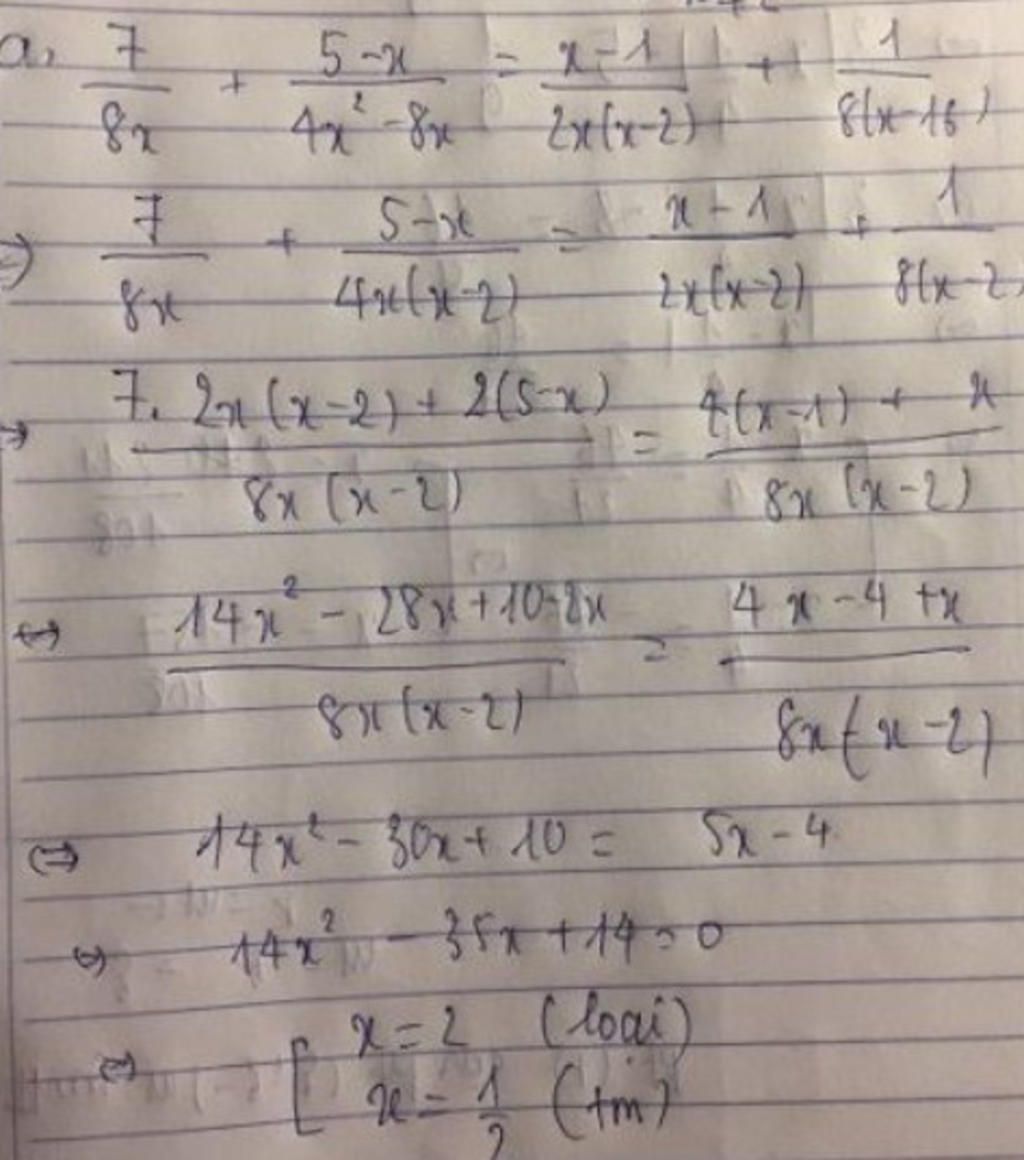 a, 7/8x + (5-x)/(4x² - 8x) = (x-1)/(2x(x-2)) + 1/(8(x-16)
⇔ 7/8x + (5-x)/(4x(x-2)) = (x-1)/(2x(x-2)) + 1/(8(x-2)
⇔ (7. 2x(x-2) + 2(5-x))/(8x(x-2)) = (4(x-1) + x)/(8x(x-2))
⇔ (14x² - 28x + 10 - 2x)/(8x(x-2)) = (4x - 4 + x)/(8x(x-2))
⇔ 14x² - 30x + 10 = 5x - 4
⇔ 14x² - 35x + 14 = 0
⇔ [ x = 2 (loại)
x = 1/2 (tm)